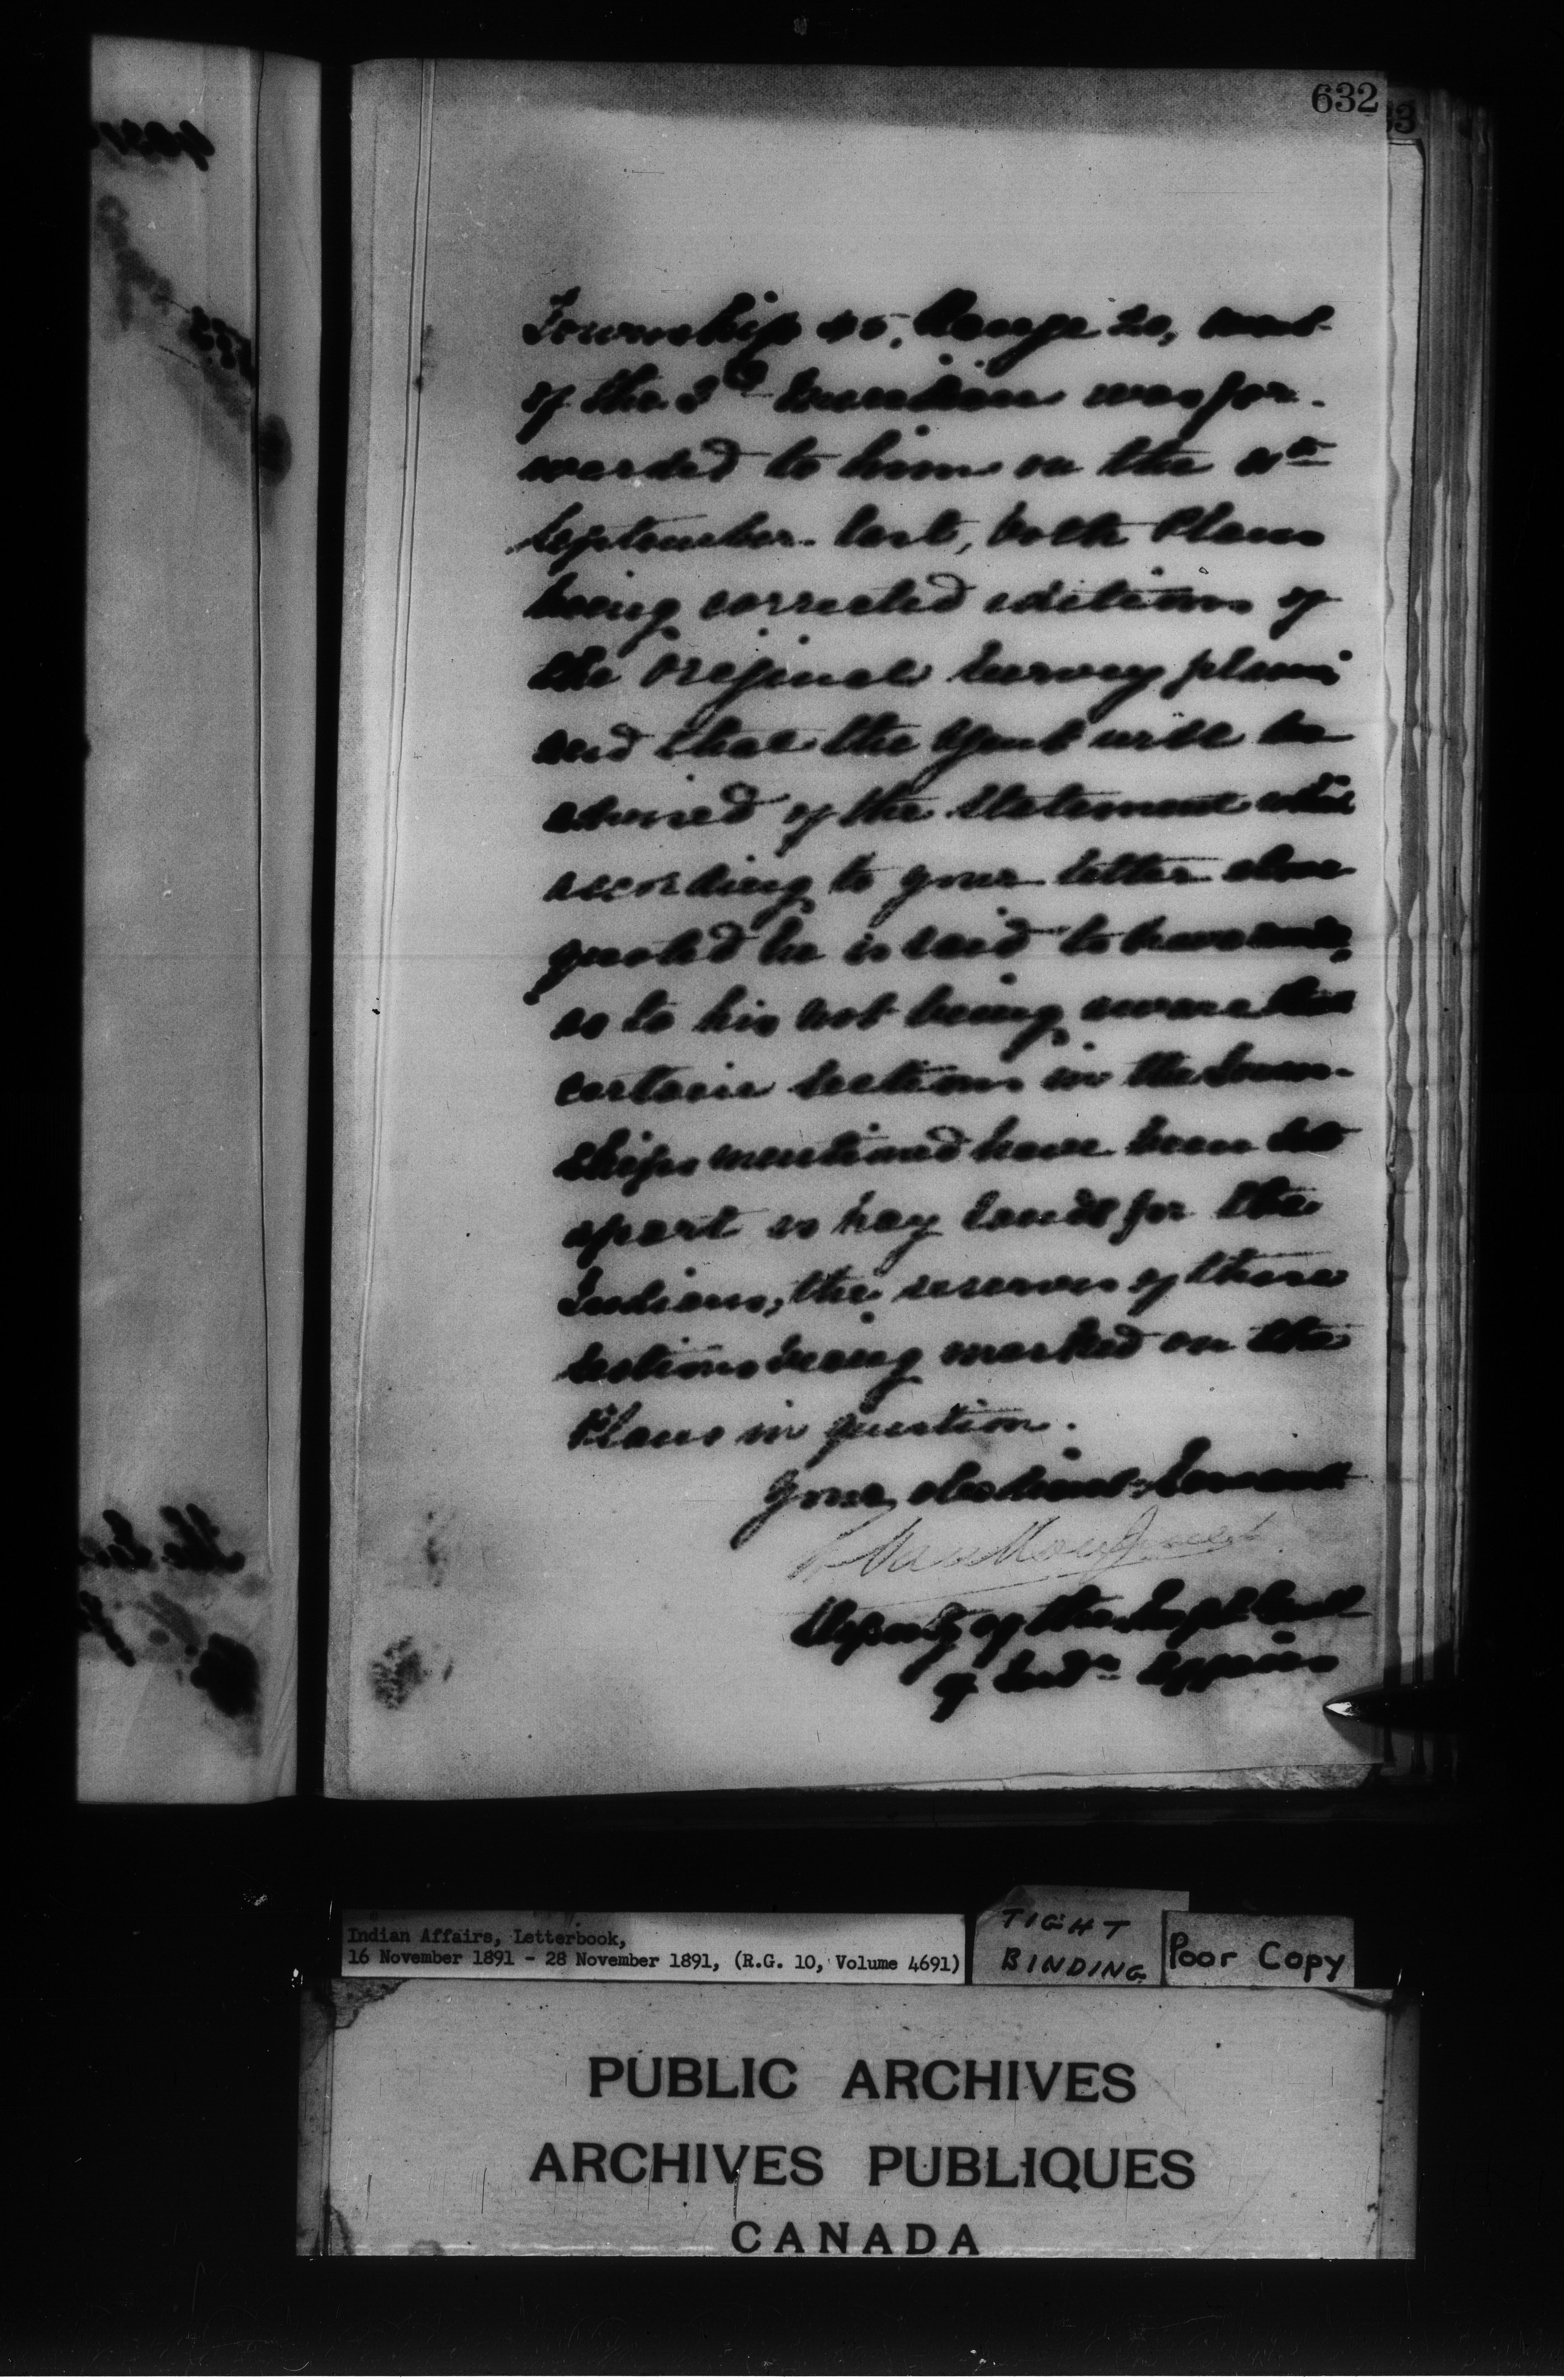 632
Township 45, Range 20, west
of the 3rd Meridian was for-
warded to him on the
September last, both Plans
being corrected editions of
the original Survey plans
and that the Agent will be
advised of the statement which
according to your letter above
quoted he is said to have made,
as to his not being aware that
certain sections in the Town-
ships mentioned have been set
apart as hay lands for the
Indians, the reserves of these
sections being marked on the
Plans in question.
Your obedient Servant
L. VanKoughnet
Deputy of the Supt Genl
of Indn Affairs
Indian Affairs, Letterbook,
16 November 1891 - 28 November 1891, (R.G. 10, Volume 4691)
TIGHT
BINDING
Poor Copy
PUBLIC ARCHIVES
ARCHIVES PUBLIQUES
CANADA